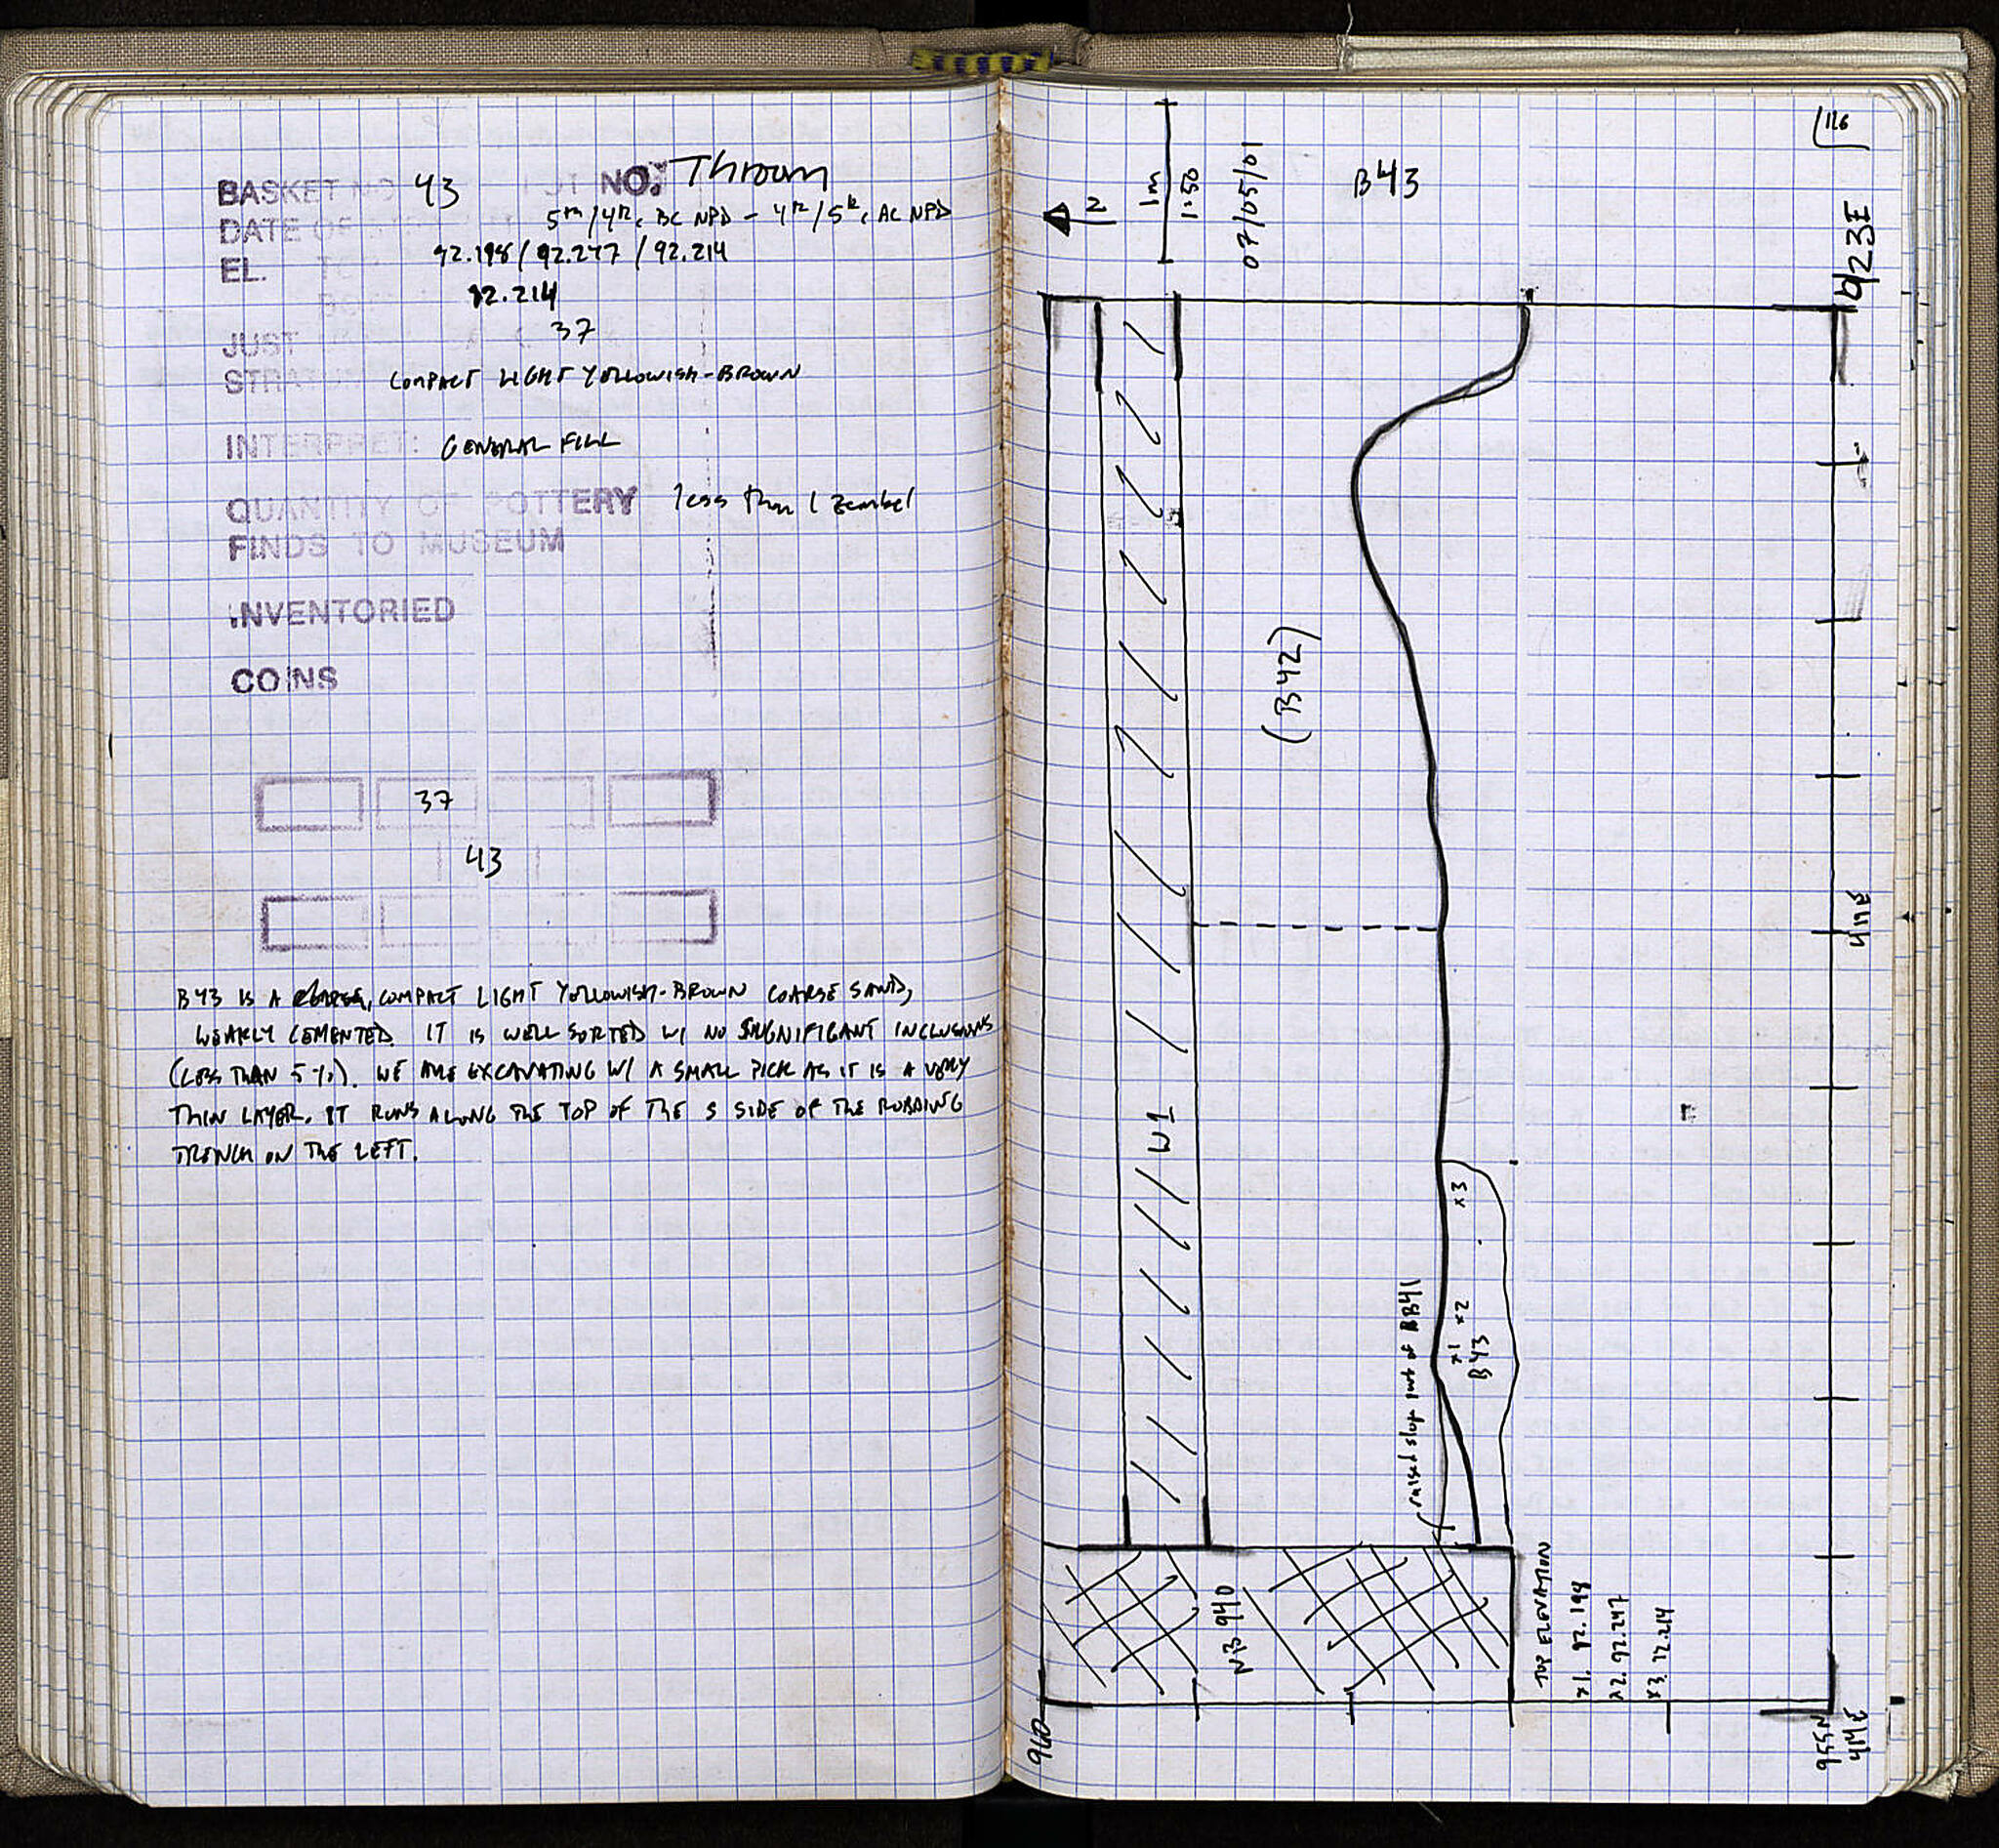 BASKET NO 43 LOT NO. Thrown
DATE OF 5th/4th c. BC NPD - 4th/5th c. AC NPD
EL. TO 92.198 / 92.247 / 92.214
BOT 92.214
JUST 37
STRATUM COMPACT LIGHT YELLOWISH-BROWN
INTERPRET: GENERAL FILL
QUANTITY OF POTTERY less than 1 zembel
FINDS TO MUSEUM
INVENTORIED
COINS
37
43
B43 IS A COMPACT LIGHT YELLOWISH-BROWN COARSE SAND,
WEAKLY CEMENTED. IT IS WELL SORTED W/ NO SIGNIFICANT INCLUSIONS
(LESS THAN 5%). WE ARE EXCAVATING W/ A SMALL PICK AS IT IS A VERY
THIN LAYER. IT RUNS ALONG THE TOP OF THE S SIDE OF THE ROBBING
TRENCH ON THE LEFT.
116
N
1m
1:50
07/05/01
B43
923E
(B42)
W1
x3
x2
x1
B43
(raised slop part of BB41
NB 940
TOP ELEVATION
x1. 92.198
x2. 92.247
x3. 92.214
960
955N
914E